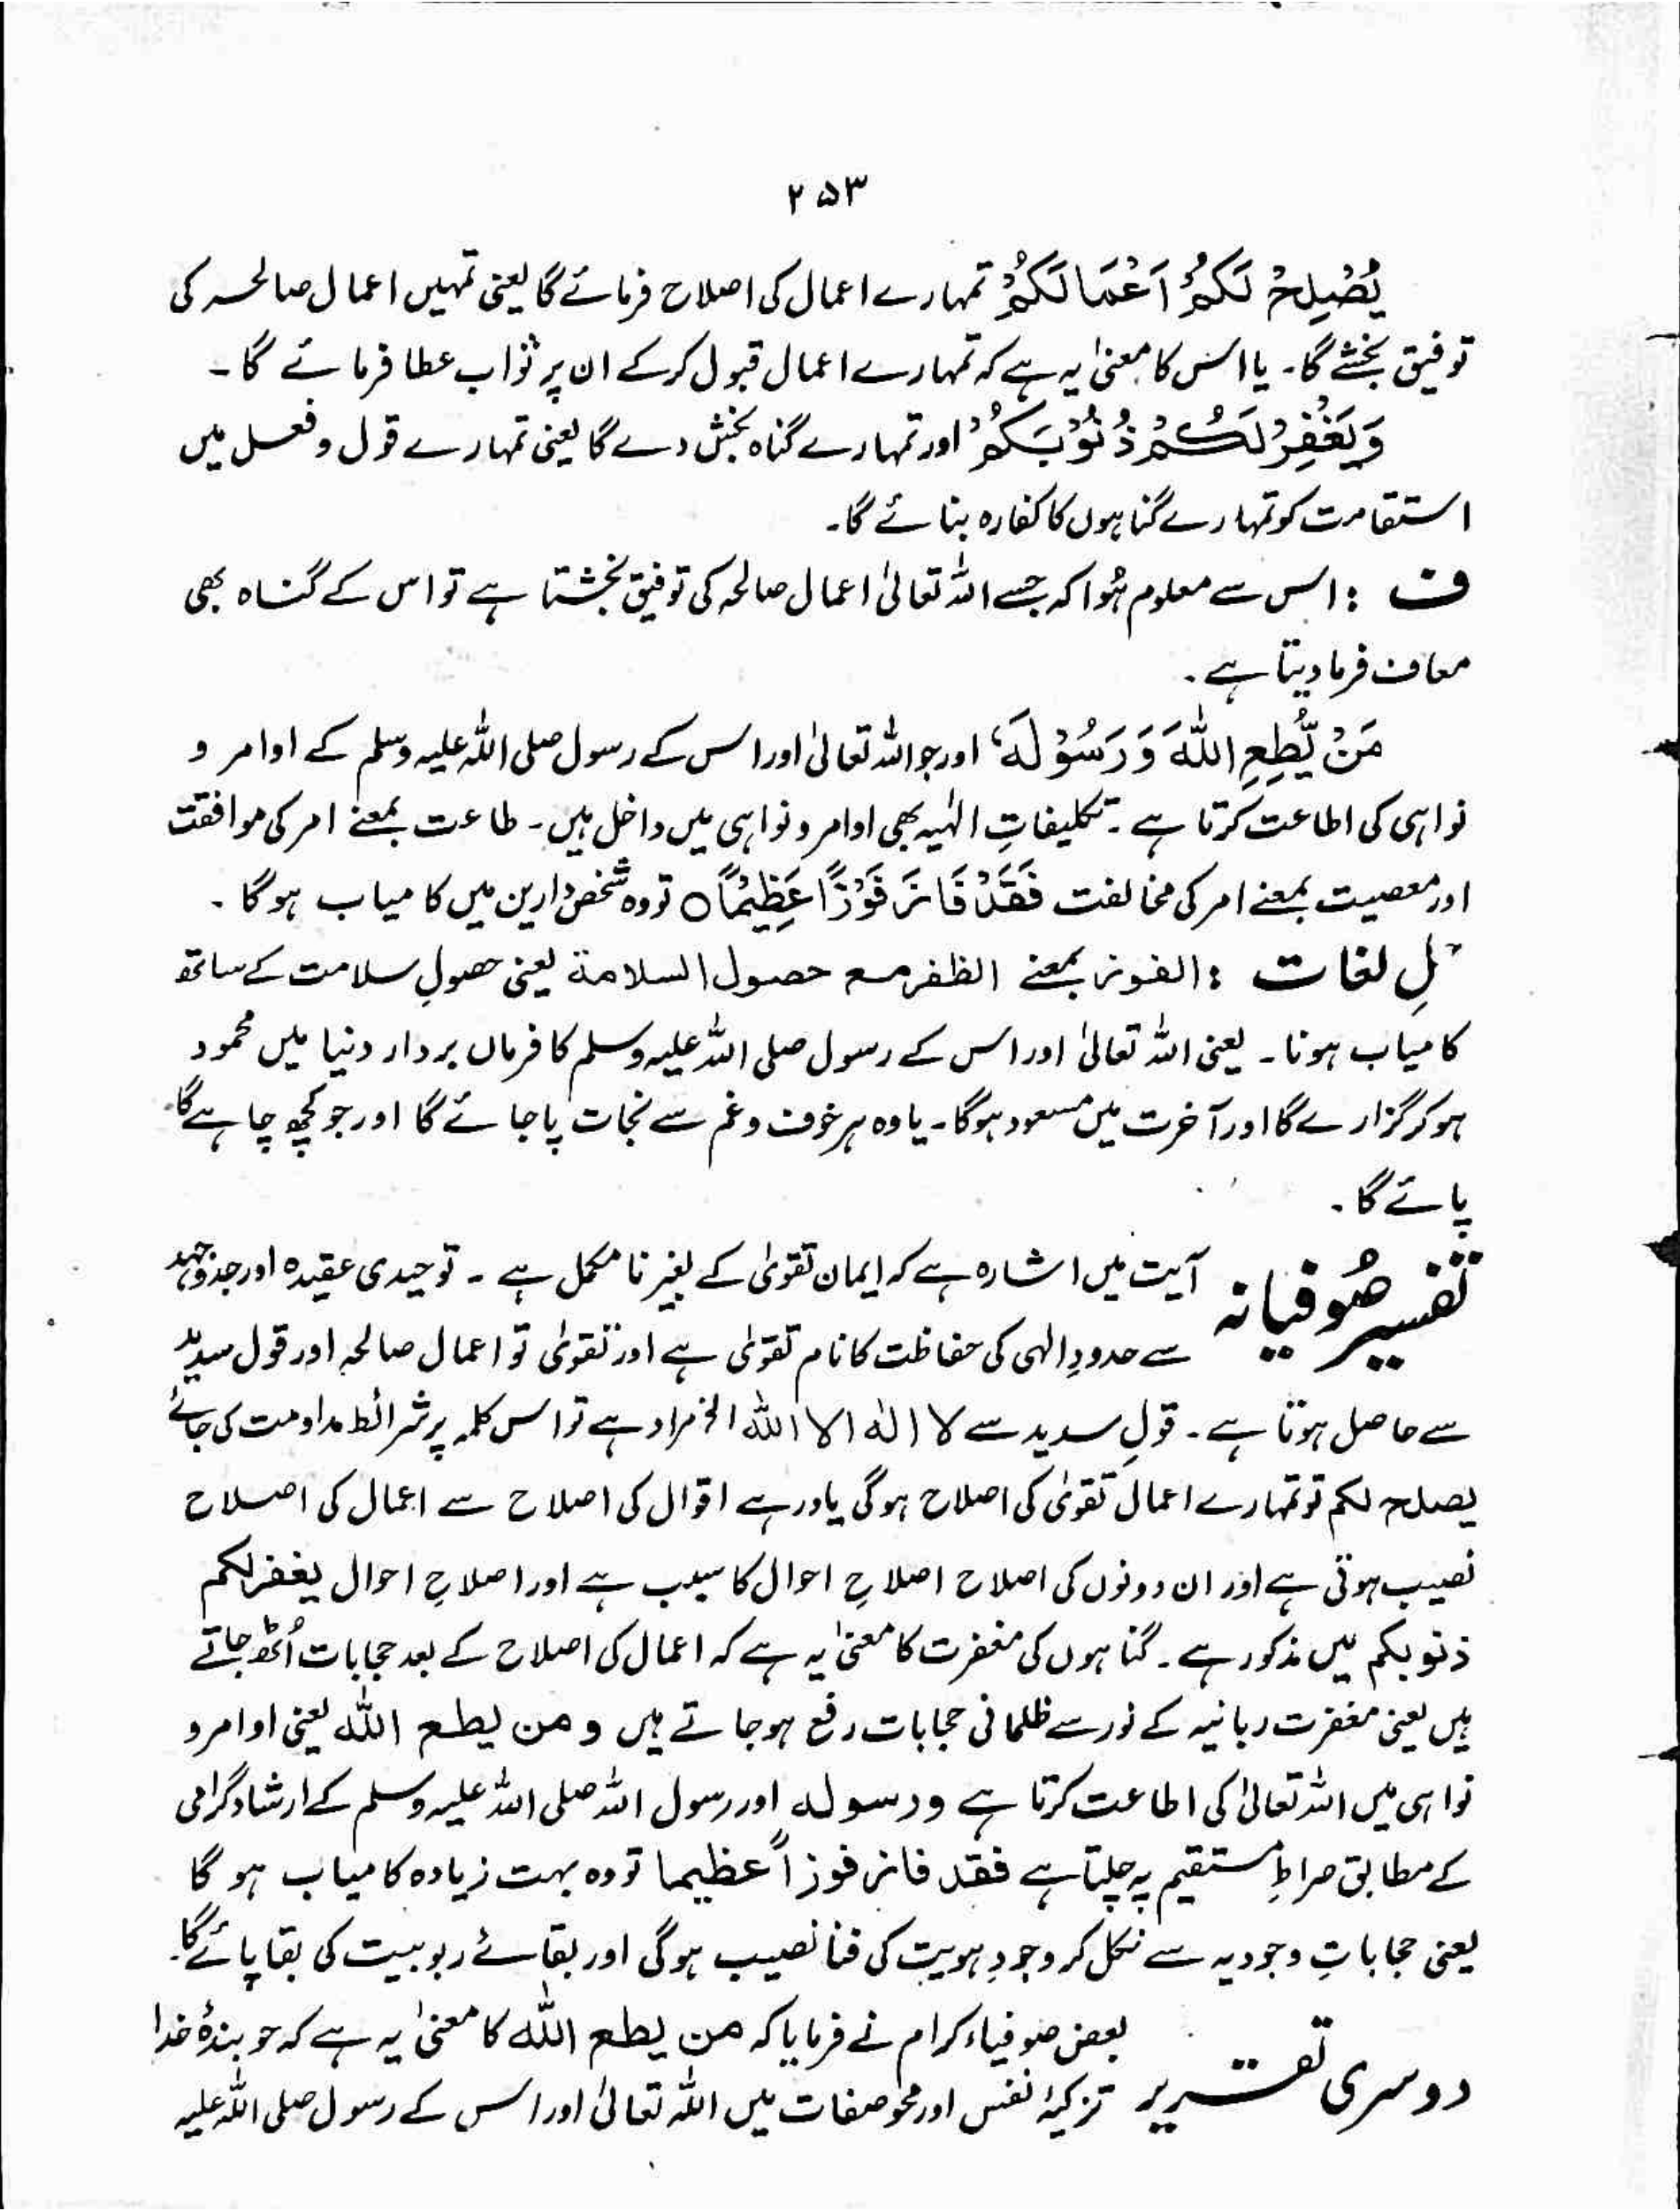 ۲۵۳
یُصْلِحْ لَكُمْ اَعْمَالَكُمْ تمہارے اعمال کی اصلاح فرمائے گا یعنی تمہیں اعمال صالحہ کی
توفیق بخشے گا۔ یا اس کا معنیٰ یہ ہے کہ تمہارے اعمال قبول کرکے ان پر ثواب عطا فرمائے گا۔
وَیَغْفِرْ لَكُمْ ذُنُوْبَكُمْ اور تمہارے گناہ بخش دے گا یعنی تمہارے قول و فعل میں
استقامت کو تمہارے گناہوں کا کفارہ بنائے گا۔
ف : اس سے معلوم ہُوا کہ جسے اللہ تعالیٰ اعمال صالحہ کی توفیق بخشتا ہے تو اس کے گناہ بھی
معاف فرما دیتا ہے۔
مَنْ یُّطِعِ اللّٰهَ وَ رَسُوْلَهٗ اور جو اللہ تعالیٰ اور اس کے رسول صلی اللہ علیہ وسلم کے اوامر و
نواہی کی اطاعت کرتا ہے۔ تکلیفاتِ الٰہیہ بھی اوامر و نواہی میں داخل ہیں۔ طاعت بمعنے امر کی موافقت
اور معصیت بمعنے امر کی مخالفت فَقَدْ فَازَ فَوْزًا عَظِیْمًا ○ تو وہ شخص دارین میں کامیاب ہوگا۔
لِ لغات : الفوز بمعنے الظفر مع حصول السلامة یعنی حصولِ سلامت کے ساتھ
کامیاب ہونا۔ یعنی اللہ تعالیٰ اور اس کے رسول صلی اللہ علیہ وسلم کا فرماں بردار دنیا میں محمود
ہو کر گزارے گا اور آخرت میں مسعود ہوگا۔ یا وہ ہر خوف و غم سے نجات پا جائے گا اور جو کچھ چاہے گا
پائے گا۔
تفسیر صُوفیانہ آیت میں اشارہ ہے کہ ایمان تقویٰ کے بغیر نامکمل ہے۔ توحیدی عقیدہ اور جدوجہد
سے حدودِ الٰہی کی حفاظت کا نام تقویٰ ہے اور تقویٰ تو اعمال صالحہ اور قول سدید
سے حاصل ہوتا ہے۔ قولِ سدید سے لا الٰہ الا اللہ الخ مراد ہے تو اس کلمہ پر شرائط مداومت کی جائے
یصلح لکم تو تمہارے اعمال تقویٰ کی اصلاح ہوگی یاد رہے اقوال کی اصلاح سے اعمال کی اصلاح
نصیب ہوتی ہے اور ان دونوں کی اصلاح اصلاحِ احوال کا سبب ہے اور اصلاحِ احوال یغفر لکم
ذنوبکم میں مذکور ہے۔ گناہوں کی مغفرت کا معنیٰ یہ ہے کہ اعمال کی اصلاح کے بعد حجابات اُٹھ جاتے
ہیں یعنی مغفرت ربانیہ کے نور سے ظلمانی حجابات رفع ہو جاتے ہیں و من یطع اللہ یعنی اوامر و
نواہی میں اللہ تعالیٰ کی اطاعت کرتا ہے ورسولہ اور رسول اللہ صلی اللہ علیہ وسلم کے ارشاد گرامی
کے مطابق صراطِ مستقیم پہ چلتا ہے فقد فاز فوزاً عظیما تو وہ بہت زیادہ کامیاب ہو گا
یعنی حجاباتِ وجودیہ سے نکل کر وجودِ ہویت کی فنا نصیب ہوگی اور بقائے ربوبیت کی بقا پائے گا۔
دوسری تقریر بعض صوفیاء کرام نے فرمایا کہ من یطع اللہ کا معنیٰ یہ ہے کہ جو بندۂ خدا
تزکیۂ نفس اور محو صفات میں اللہ تعالیٰ اور اس کے رسول صلی اللہ علیہ